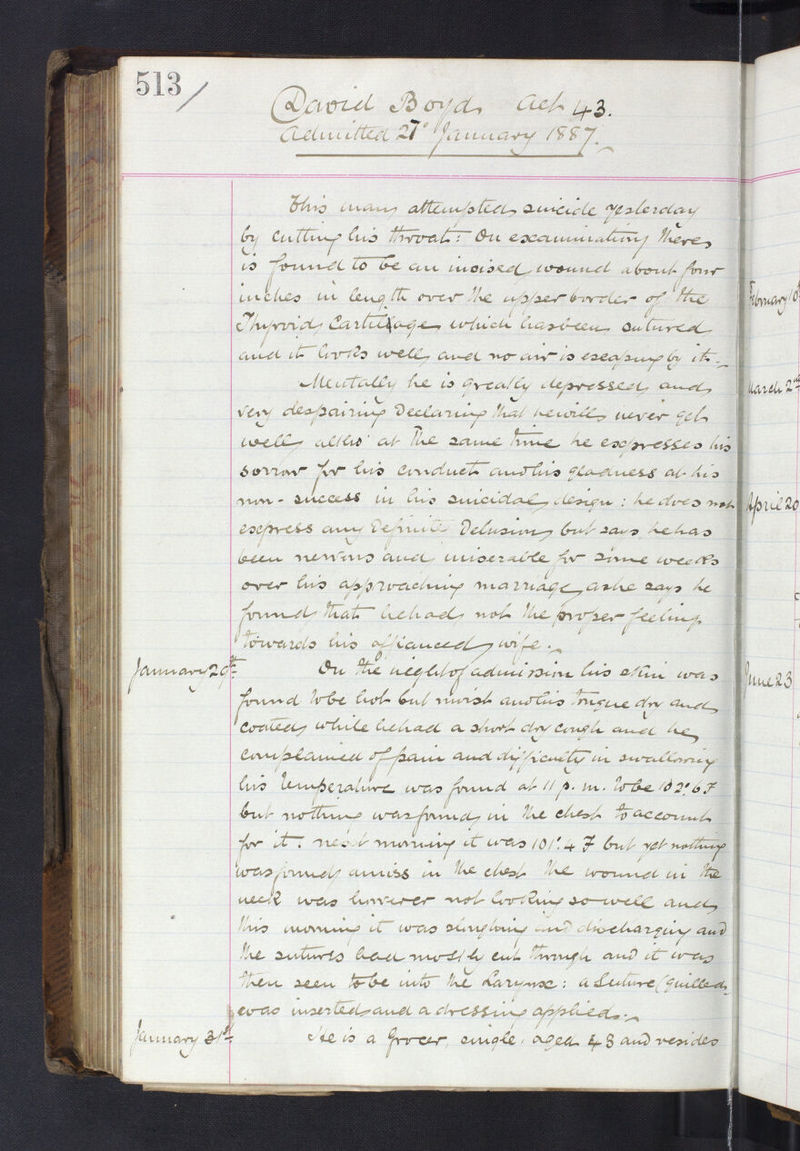 513/
David Boyd Aet 43.
Admitted 27th January 1887.
This man attempted suicide yesterday
by cutting his throat: On examination there
is found to be an incised wound about four
inches in length over the upper border of the
Thyroid Cartilage which has been sutured
and it looks well and no air is escaping by it.
Mentally he is greatly depressed and
very despairing Declaring that he will never get
well altho' at the same time he expresses his
sorrow for his conduct and his gladness at his
non-success in his suicidal design: he does not
express any Definite Delusion but says he has
been nervous and miserable for some weeks
over his approaching marriage, as he says he
found that he had not the proper feeling
towards his affianced wife.
January 29th On the night of admission his skin was
found to be hot but moist and his tongue dry and
coated, while he had a short dry cough and he
complained of pain and difficulty in swallowing
his temperature was found at 11 p.m. to be 102°.6 F
but nothing was found in the chest to account
for it. next morning it was 101°.4 F but yet nothing
was found amiss in the chest the wound in the
neck was however not looking so well and
this morning it was sloughing and discharging and
the sutures had mostly cut through and it was
then seen to be into the Larynx: a Suture (quilled)
was inserted and a dressing applied.
January 31st He is a Grocer, single, aged 43 and resides
February 10th
March 2nd
April 20
June 23